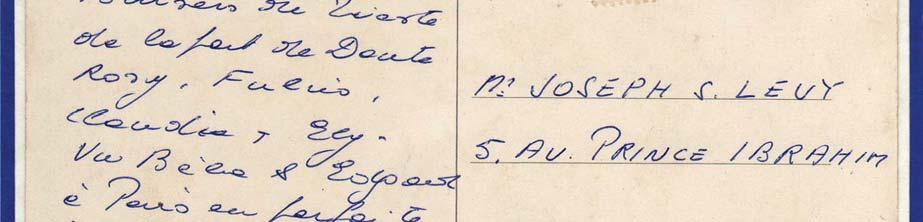 de Trieste
de la part de Dante
Rosy, Fulvio,
Claudia, Ely.
Vu Béba & Edgard
à Paris en parfaite
Mr JOSEPH S. LEVY
5. AV. PRINCE IBRAHIM